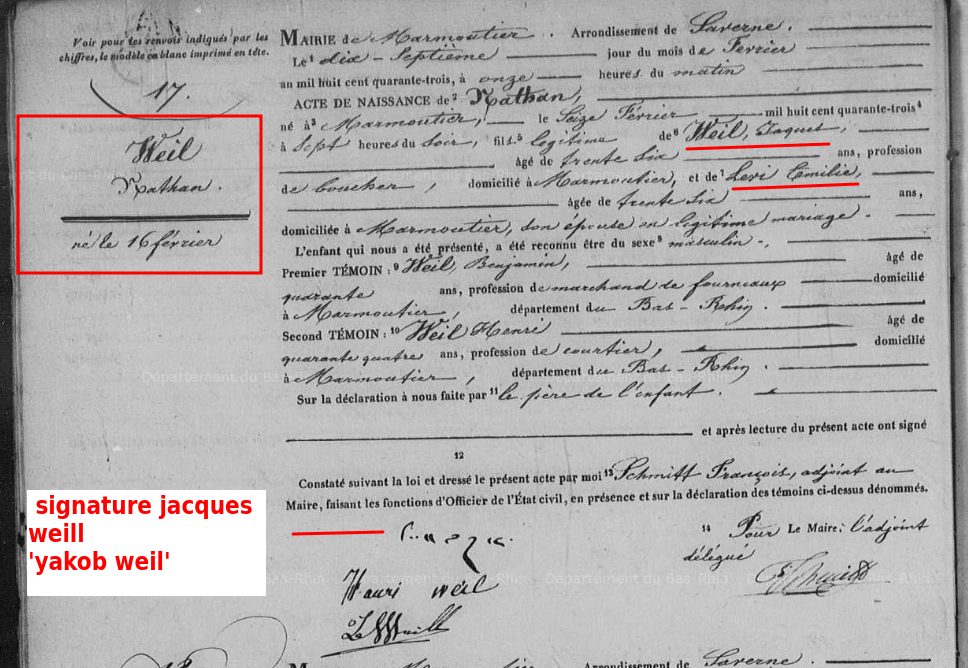 Voir pour les renvois indiqués par les
chiffres, le modèle en blanc imprimé en tête.
17.
Weil
Nathan.
né le 16 février
MAIRIE de Marmoutier. Arrondissement de Saverne.
Le¹ dix-Septième jour du mois de Février
an mil huit cent quarante-trois, à onze heures du matin
ACTE DE NAISSANCE de² Nathan,
né à³ Marmoutier, le Seize Février mil huit cent quarante-trois⁴
à Sept heures du Soir, fils⁵ légitime de⁶ Weil, Jaques,
âgé de trente Six ans, profession
de boucher, domicilié à Marmoutier, et de⁷ Levi Emilie,
âgée de trente Six ans,
domiciliée à Marmoutier, son épouse en légitime mariage.
L'enfant qui nous a été présenté, a été reconnu être du sexe⁸ masculin.
Premier TÉMOIN :⁹ Weil, Benjamin, âgé de
quarante ans, profession de marchand de fourneaux domicilié
à Marmoutier, département du Bas-Rhin.
Second TÉMOIN :¹⁰ Weil Henri âgé de
quarante quatre ans, profession de courtier, domicilié
à Marmoutier, département du Bas-Rhin.
Sur la déclaration à nous faite par¹¹ le père de l'enfant.
et après lecture du présent acte ont signé
12
Constaté suivant la loi et dressé le présent acte par moi¹³ Schmitt François, adjoint au
Maire, faisant les fonctions d'Officier de l'État civil, en présence et sur la déclaration des témoins ci-dessus dénommés.
14 Pour Le Maire: l'adjoint
délégué
signature jacques
weill
'yakob weil'
Hanri weil
Département du Bas-Rhin
Arrondissement de Saverne